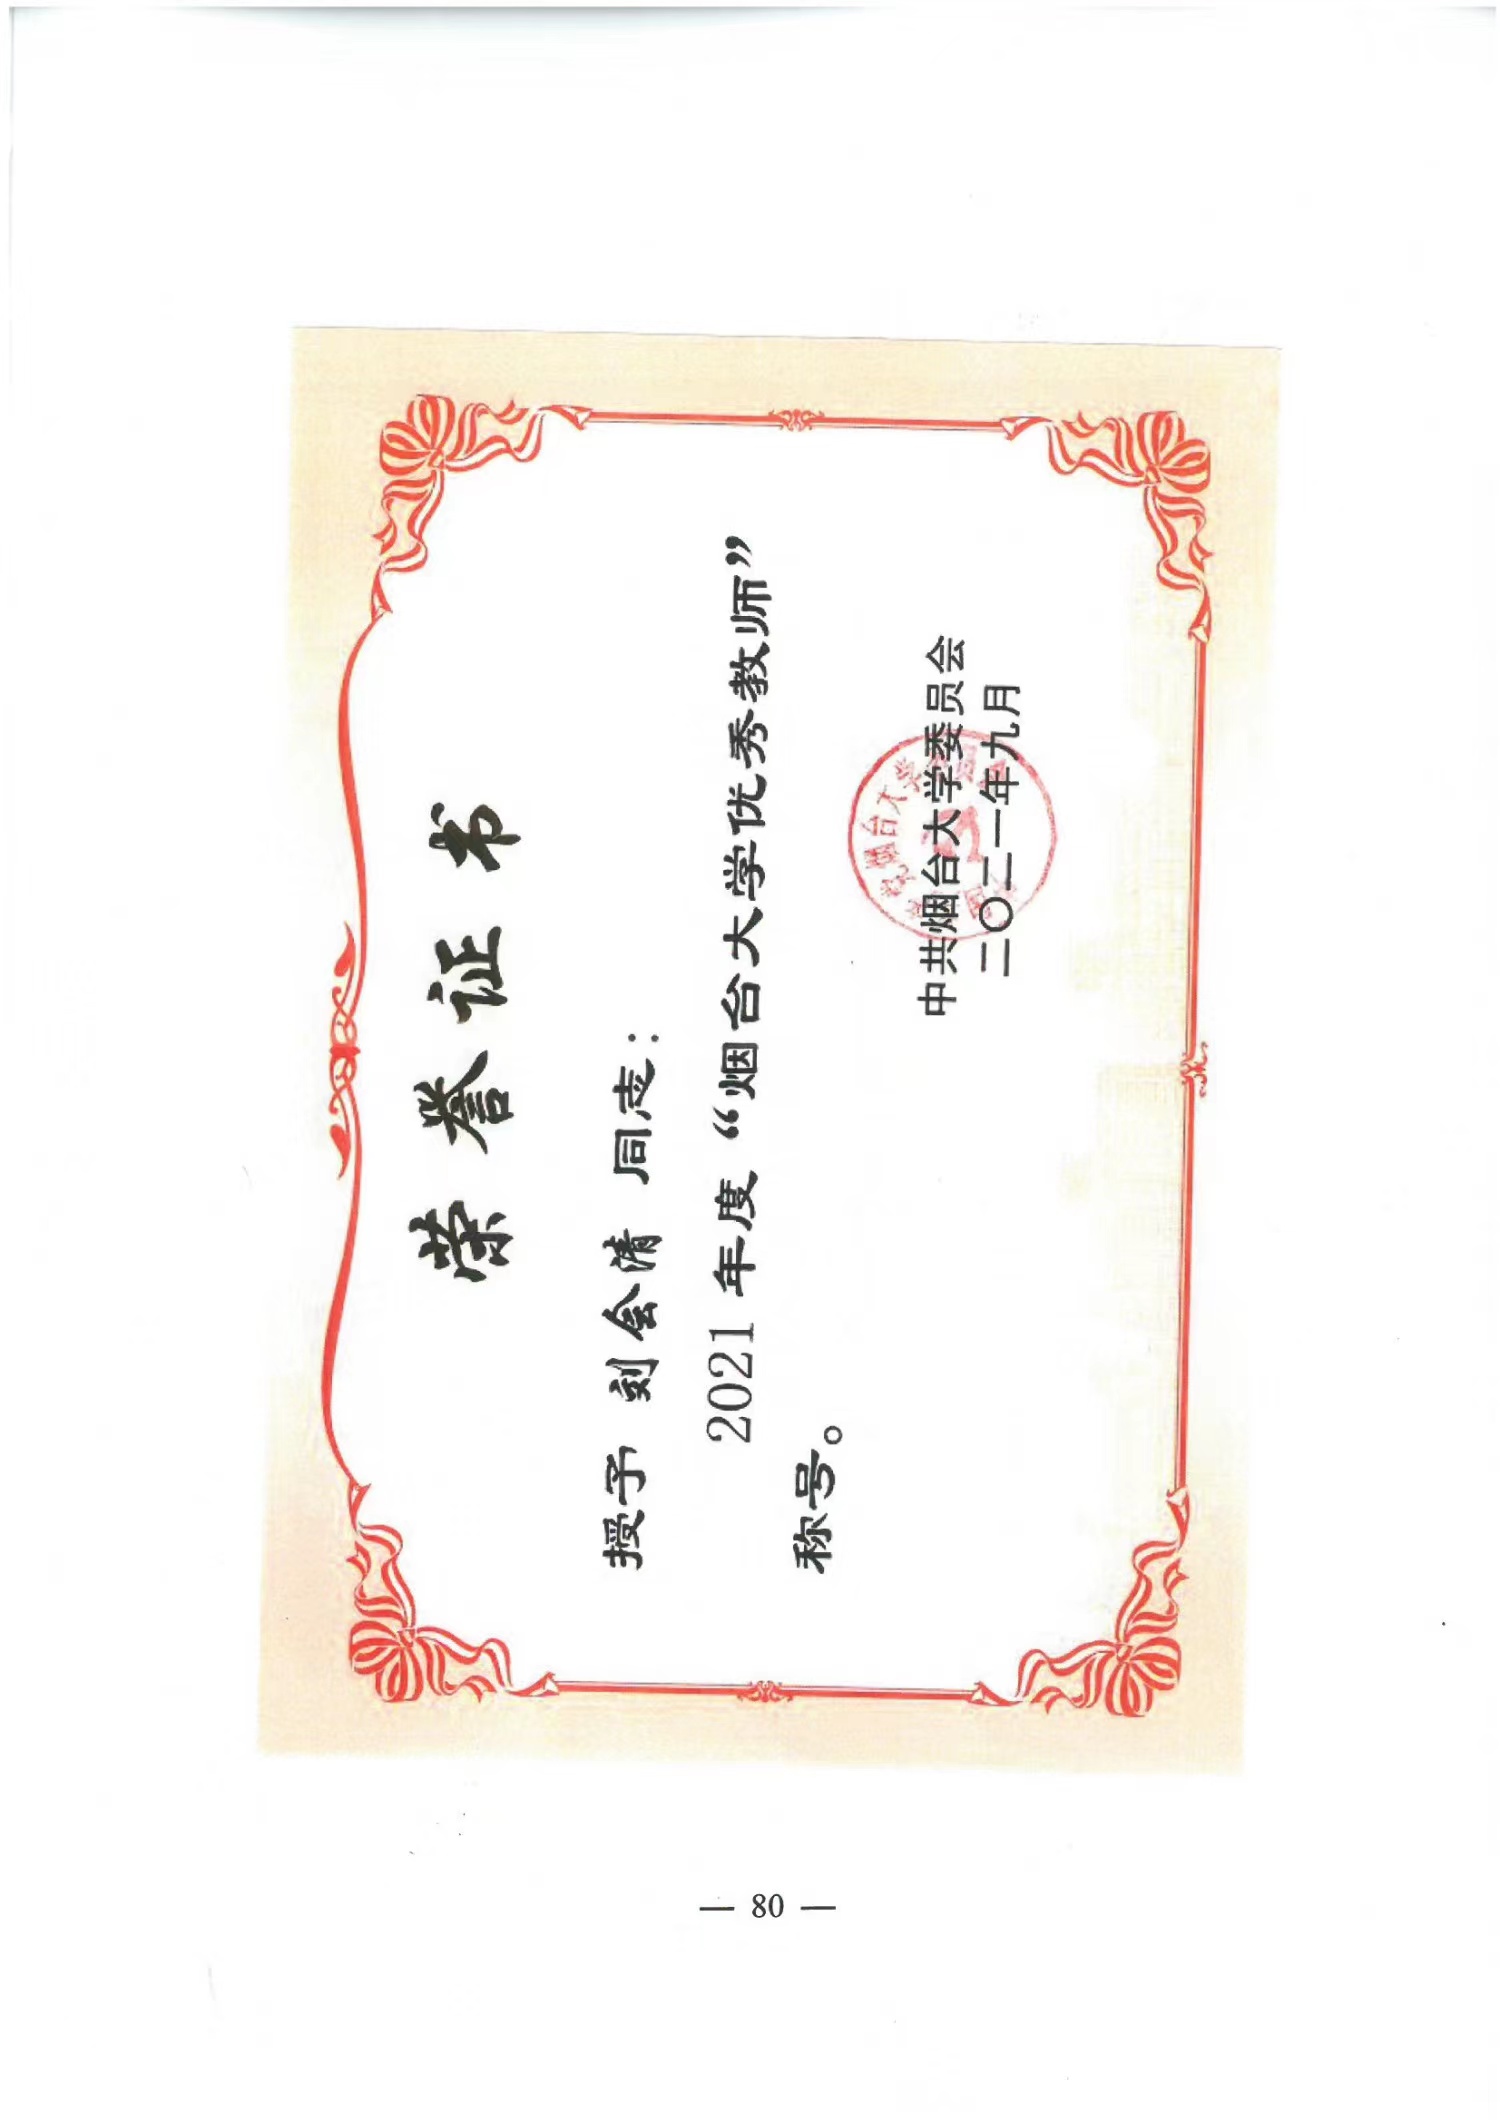 荣誉证书
授予 刘会清 同志：
2021 年度“烟台大学优秀教师”
称号。
中共烟台大学委员会
二〇二一年九月
— 80 —